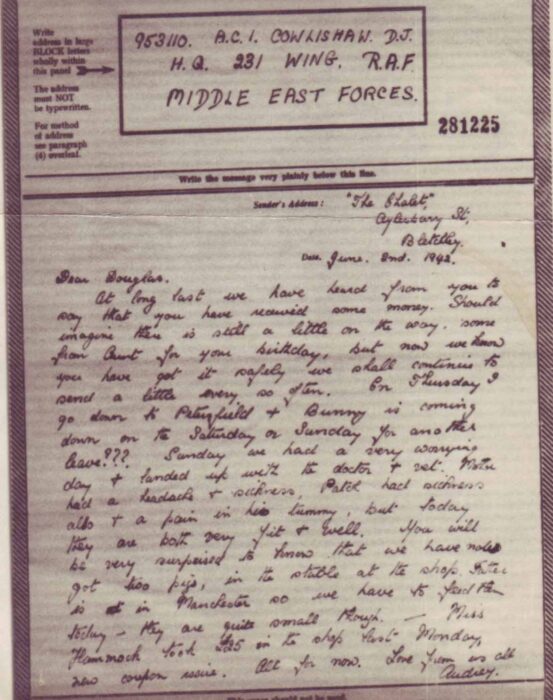 Write
address in large
BLOCK letters
wholly within
this panel
The address
must NOT
be typewritten.
For method
of address
see paragraph
(4) overleaf.
953110. A.C.1. COWLISHAW. D.J.
H.Q. 231 WING. R.A.F
MIDDLE EAST FORCES.
281225
Write the message very plainly below this line.
Sender's Address: "The Chalet,"
Aylesbury St,
Bletchley.
Date. June. 2nd. 1942.
Dear Douglas.
At long last we have heard from you to
say that you have received some money. Should
imagine there is still a little on the way. some
from Aunt for your birthday, but now we know
you have got it safely we shall continue to
send a little every so often. On Thursday I
go down to Petersfield + Bunny is coming
down on the Saturday or Sunday for another
leave??? Sunday we had a very worrying
day + landed up with the doctor + vet.
had a headache + sickness, Patch had sickness
also + a pain in his tummy, but today
they are both very fit + well. You will
be very surprised to know that we have now
got two pigs, in the stable at the shop.
is in Manchester so we have to feed them
today - they are quite small though. - Miss
Hammock took £25 in the shop last Monday,
new coupon issue. All for now. Love from us all
Audrey.